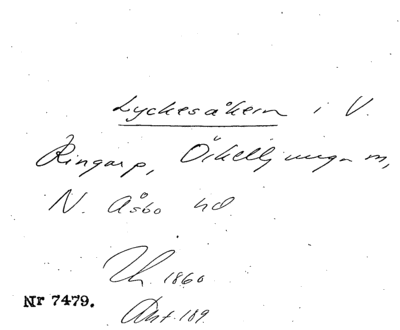 Lyckesåkern i V.
Ringarp, Örkelljunga m,
N. Åsbo hd.
Th. 1860
Nr 7479.
Ant. 189.